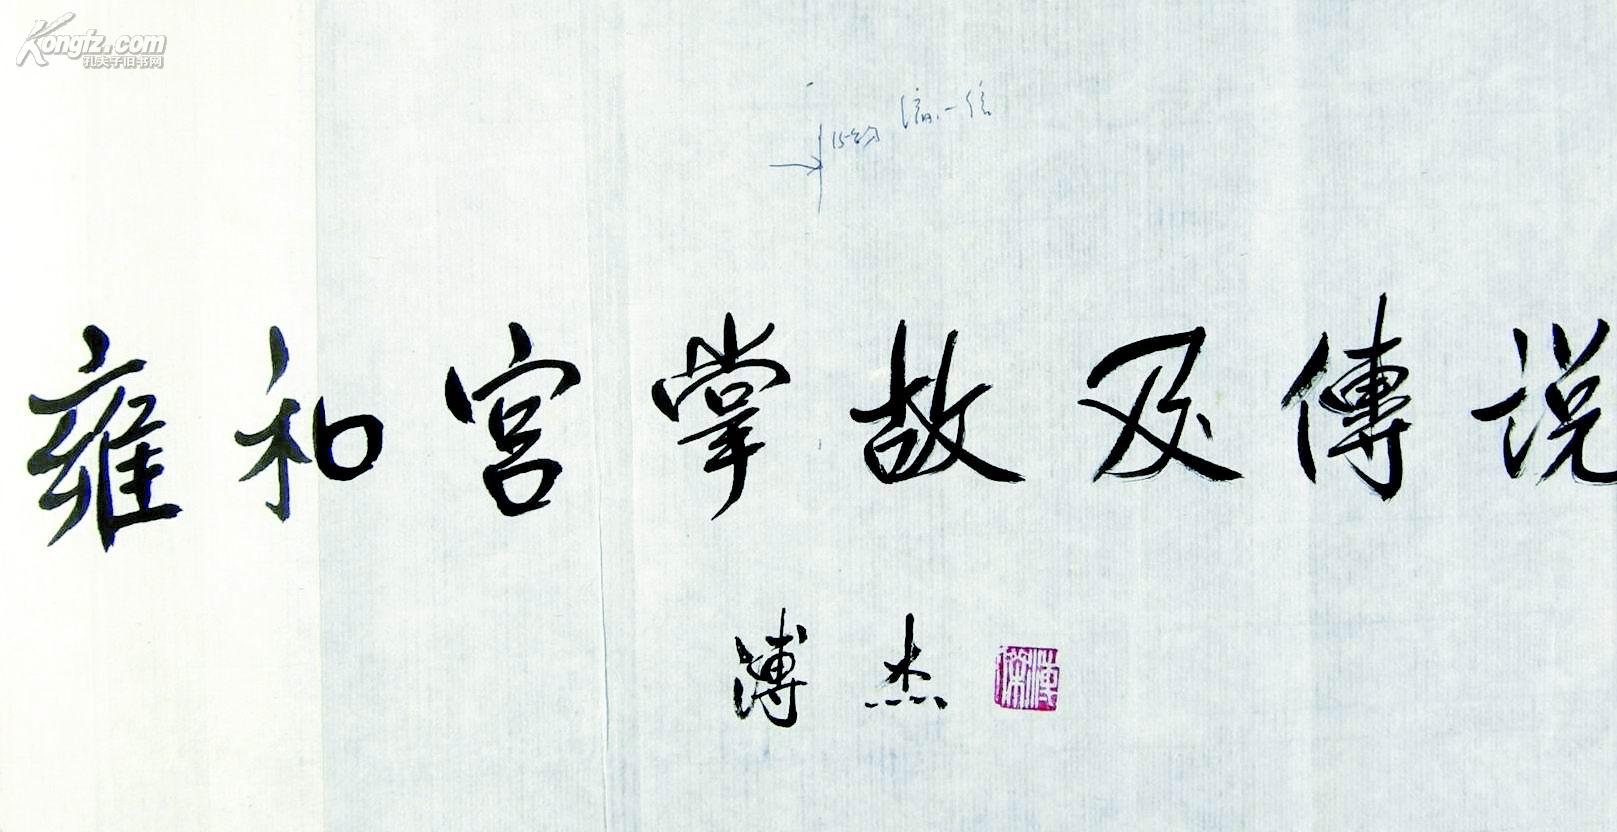 Kongfz.com
孔夫子旧书网
雍和宫掌故及傳说
溥杰
溥傑